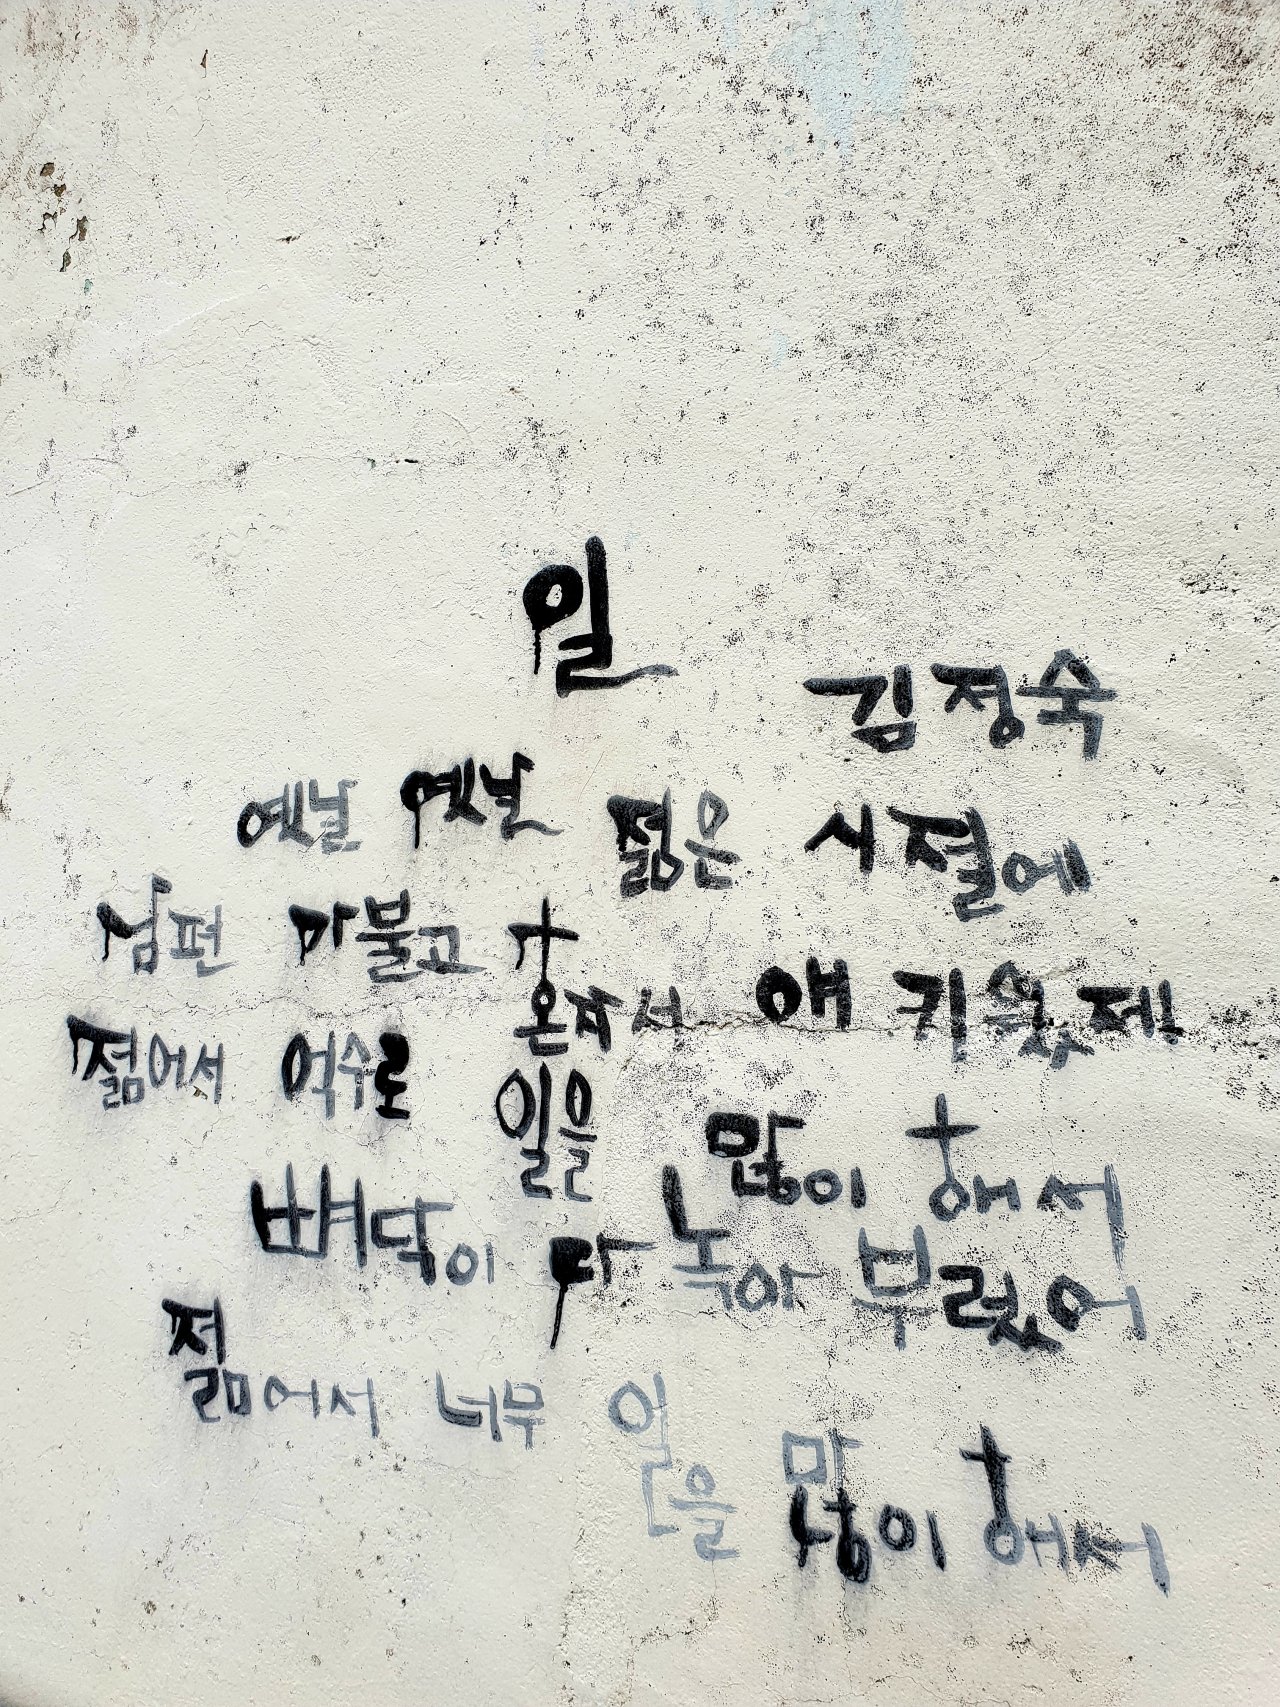 일
김정숙
옛날 옛날 젊은 시절에
남편 마불고 혼자서 애 키웠제
젊어서 억수로 일을 많이 해서
뼈닥이 다 녹아 부렀어
젊어서 너무 일을 많이 해서